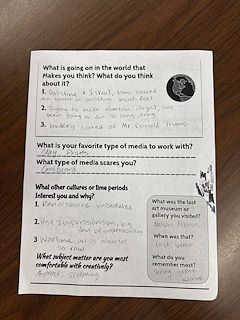 What is going on in the world that
Makes you think? What do you think
about it?
1. Palistine & Isreal, how scared
people of palistine must feel
2. Trying to make abortion illegal, has
been going on for so long
3. How scared of Mr Donald Trump
What is your favorite type of media to work with?
Clay
What type of media scares you?
What other cultures or time periods
Interest you and why?
1. Renaissance unbeatable
2. Post Impressionism,
fan of impressionism
3 Wartime, art is always
so raw
What subject matter are you most
comfortable with creatively?
Abstract,
What was the last
art museum or
gallery you visited?
When was that?
last year
What do you
remember most?
Seeing great
wave